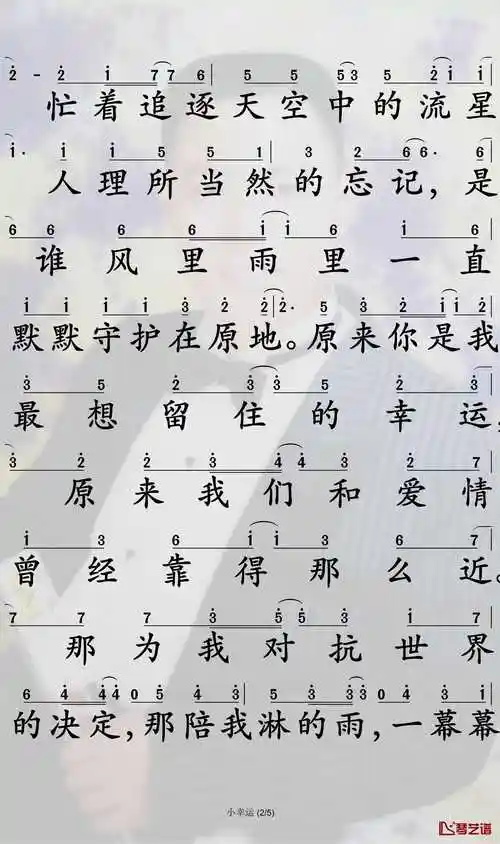 2 - 2 i 7 7 6 | 5 5 5 5 3 5 2 i i |
忙着追逐天空中的流星
i· i i 5 5 5 1 | 3 2 6 6· 6 |
人理所当然的忘记,是
6 6 6 6 6 i i 6 i 6 |
谁风里雨里一直
i i i i 3 2 2 i 2· 5 3 2 i i 2 |
默默守护在原地。原来你是我
3 5 2 3 3 5 2 2 |
最想留住的幸运,
3 2 2 3 4 4 3 2 7 |
原来我们和爱情
i 3 6 i i 7 6 7 |
曾经靠得那么近。
7 7 7 3 2 5 5 i 7 |
那为我对抗世界
6 4 4 4 0 5 4 3 | 5 5 3 3 0 4 3 i |
的决定,那陪我淋的雨,一幕幕
小幸运 (2/5)
琴艺谱